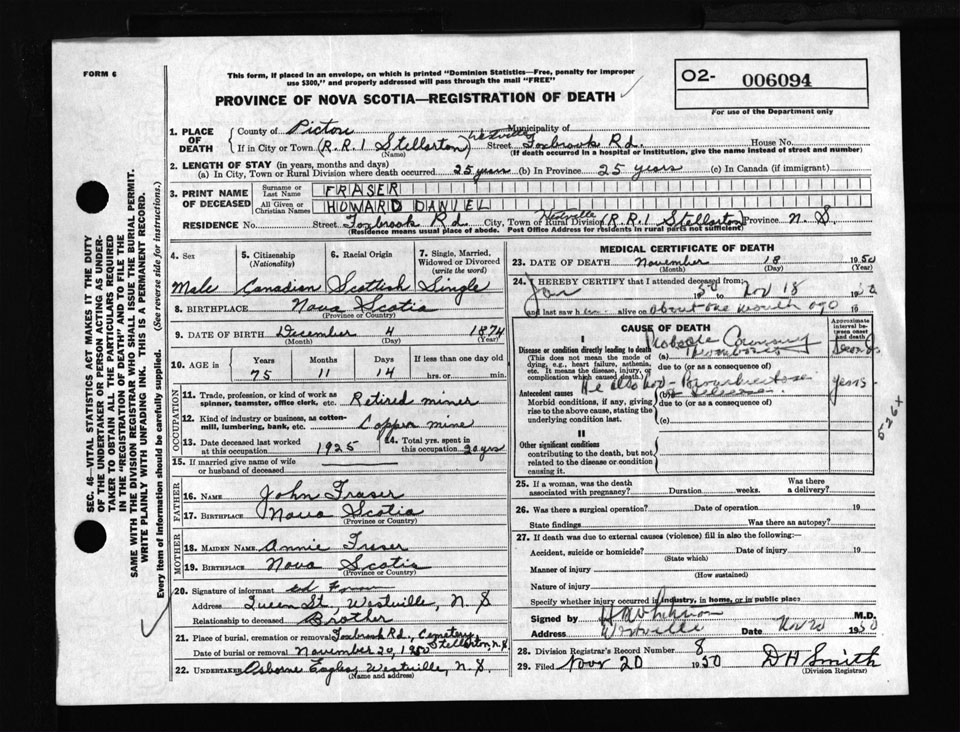 FORM 6
This form, if placed in an envelope, on which is printed "Dominion Statistics—Free, penalty for improper
use $300," and properly addressed will pass through the mail "FREE"
O2- 006094
For use of the Department only
PROVINCE OF NOVA SCOTIA—REGISTRATION OF DEATH
1. PLACE OF DEATH { County of Pictou Municipality of
If in City or Town (R.R.1 Stellarton) Westville Street Foxbrook Rd. House No.
(Name) (If death occurred in a hospital or institution, give the name instead of street and number)
2. LENGTH OF STAY (in years, months and days)
(a) In City, Town or Rural Division where death occurred 25 years (b) In Province 25 years (c) In Canada (if immigrant)
3. PRINT NAME OF DECEASED { Surname or Last Name FRASER
All Given or Christian Names HOWARD DANIEL
RESIDENCE No. Street Foxbrook Rd. City, Town or Rural Division Westville R.R.1 Stellarton Province N.S.
(Residence means usual place of abode. Post Office Address for residents in rural parts not sufficient)
4. Sex Male
5. Citizenship (Nationality) Canadian
6. Racial Origin Scottish
7. Single, Married, Widowed or Divorced (write the word) Single
8. BIRTHPLACE Nova Scotia
(Province or Country)
9. DATE OF BIRTH December 4 1874
(Month) (Day) (Year)
10. AGE Years 75 Months 11 Days 14 If less than one day old hrs. or min.
OCCUPATION
11. Trade, profession, or kind of work as spinner, teamster, office clerk, etc. Retired miner
12. Kind of industry or business, as cotton-mill, lumbering, bank, etc. Copper mine
13. Date deceased last worked at this occupation 1925
14. Total yrs. spent in this occupation 30 yrs
15. If married give name of wife or husband of deceased
FATHER
16. NAME John Fraser
17. BIRTHPLACE Nova Scotia
(Province or Country)
MOTHER
18. MAIDEN NAME Annie Fraser
19. BIRTHPLACE Nova Scotia
(Province or Country)
20. Signature of informant
Address Queen St., Westville, N.S
Relationship to deceased Brother
21. Place of burial, cremation or removal Foxbrook Rd., Cemetery, Stellarton, N.S
Date of burial or removal November 20, 1950
22. UNDERTAKER Osborne Eagles Westville, N.S,
(Name and address)
MEDICAL CERTIFICATE OF DEATH
23. DATE OF DEATH November 18 1950
(Month) (Day) (Year)
24. I HEREBY CERTIFY that I attended deceased from:
Jan 50 to Nov 18 1950
and last saw h alive on about one month ago 19
CAUSE OF DEATH
Approximate interval between onset and death
I
Disease or condition directly leading to death (a) Probable Coronary Thrombosis
(This does not mean the mode of dying, e.g., heart failure, asthenia, etc. It means the disease, injury, or complication which caused death.)
due to (or as a consequence of)
He also had
Antecedent causes (b) years
Morbid conditions, if any, giving rise to the above cause, stating the underlying condition last.
due to (or as a consequence of)
(c)
526X
II
Other significant conditions contributing to the death, but not related to the disease or condition causing it.
25. If a woman, was the death associated with pregnancy? Duration weeks. Was there a delivery?
26. Was there a surgical operation? Date of operation 19
State findings Was there an autopsy?
27. If death was due to external causes (violence) fill in also the following:—
Accident, suicide or homicide? Date of injury 19
(State which)
Manner of injury
(How sustained)
Nature of injury
Specify whether injury occurred in industry, in home, or in public place
Signed by M.D.
Address Westville Date Nov 20 1950
28. Division Registrar's Record Number 8
29. Filed Nov 20 1950 D H Smith
(Division Registrar)
SEC. 46—VITAL STATISTICS ACT MAKES IT THE DUTY
OF THE UNDERTAKER OR PERSON ACTING AS UNDER-
TAKER TO OBTAIN ALL THE PARTICULARS REQUIRED
IN THE "REGISTRATION OF DEATH" AND TO FILE THE
SAME WITH THE DIVISION REGISTRAR WHO SHALL ISSUE THE BURIAL PERMIT.
WRITE PLAINLY WITH UNFADING INK. THIS IS A PERMANENT RECORD.
Every item of information should be carefully supplied. (See reverse side for instructions.)